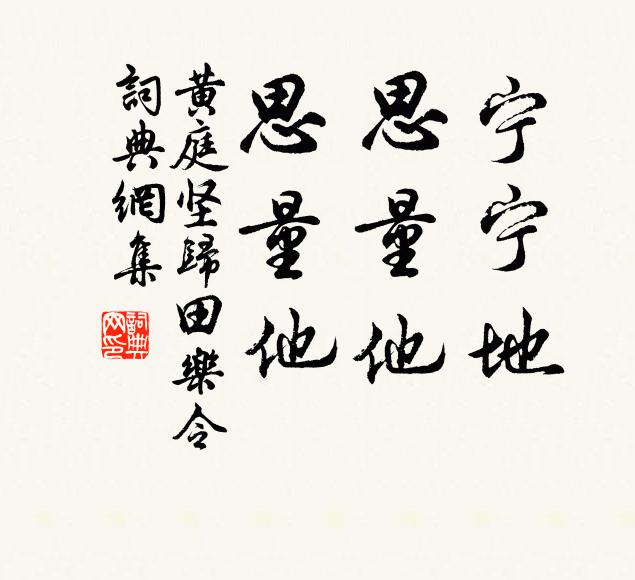 宁宁地
思量他
思量他
黄庭坚歸田樂令
詞典網集
詞典網印